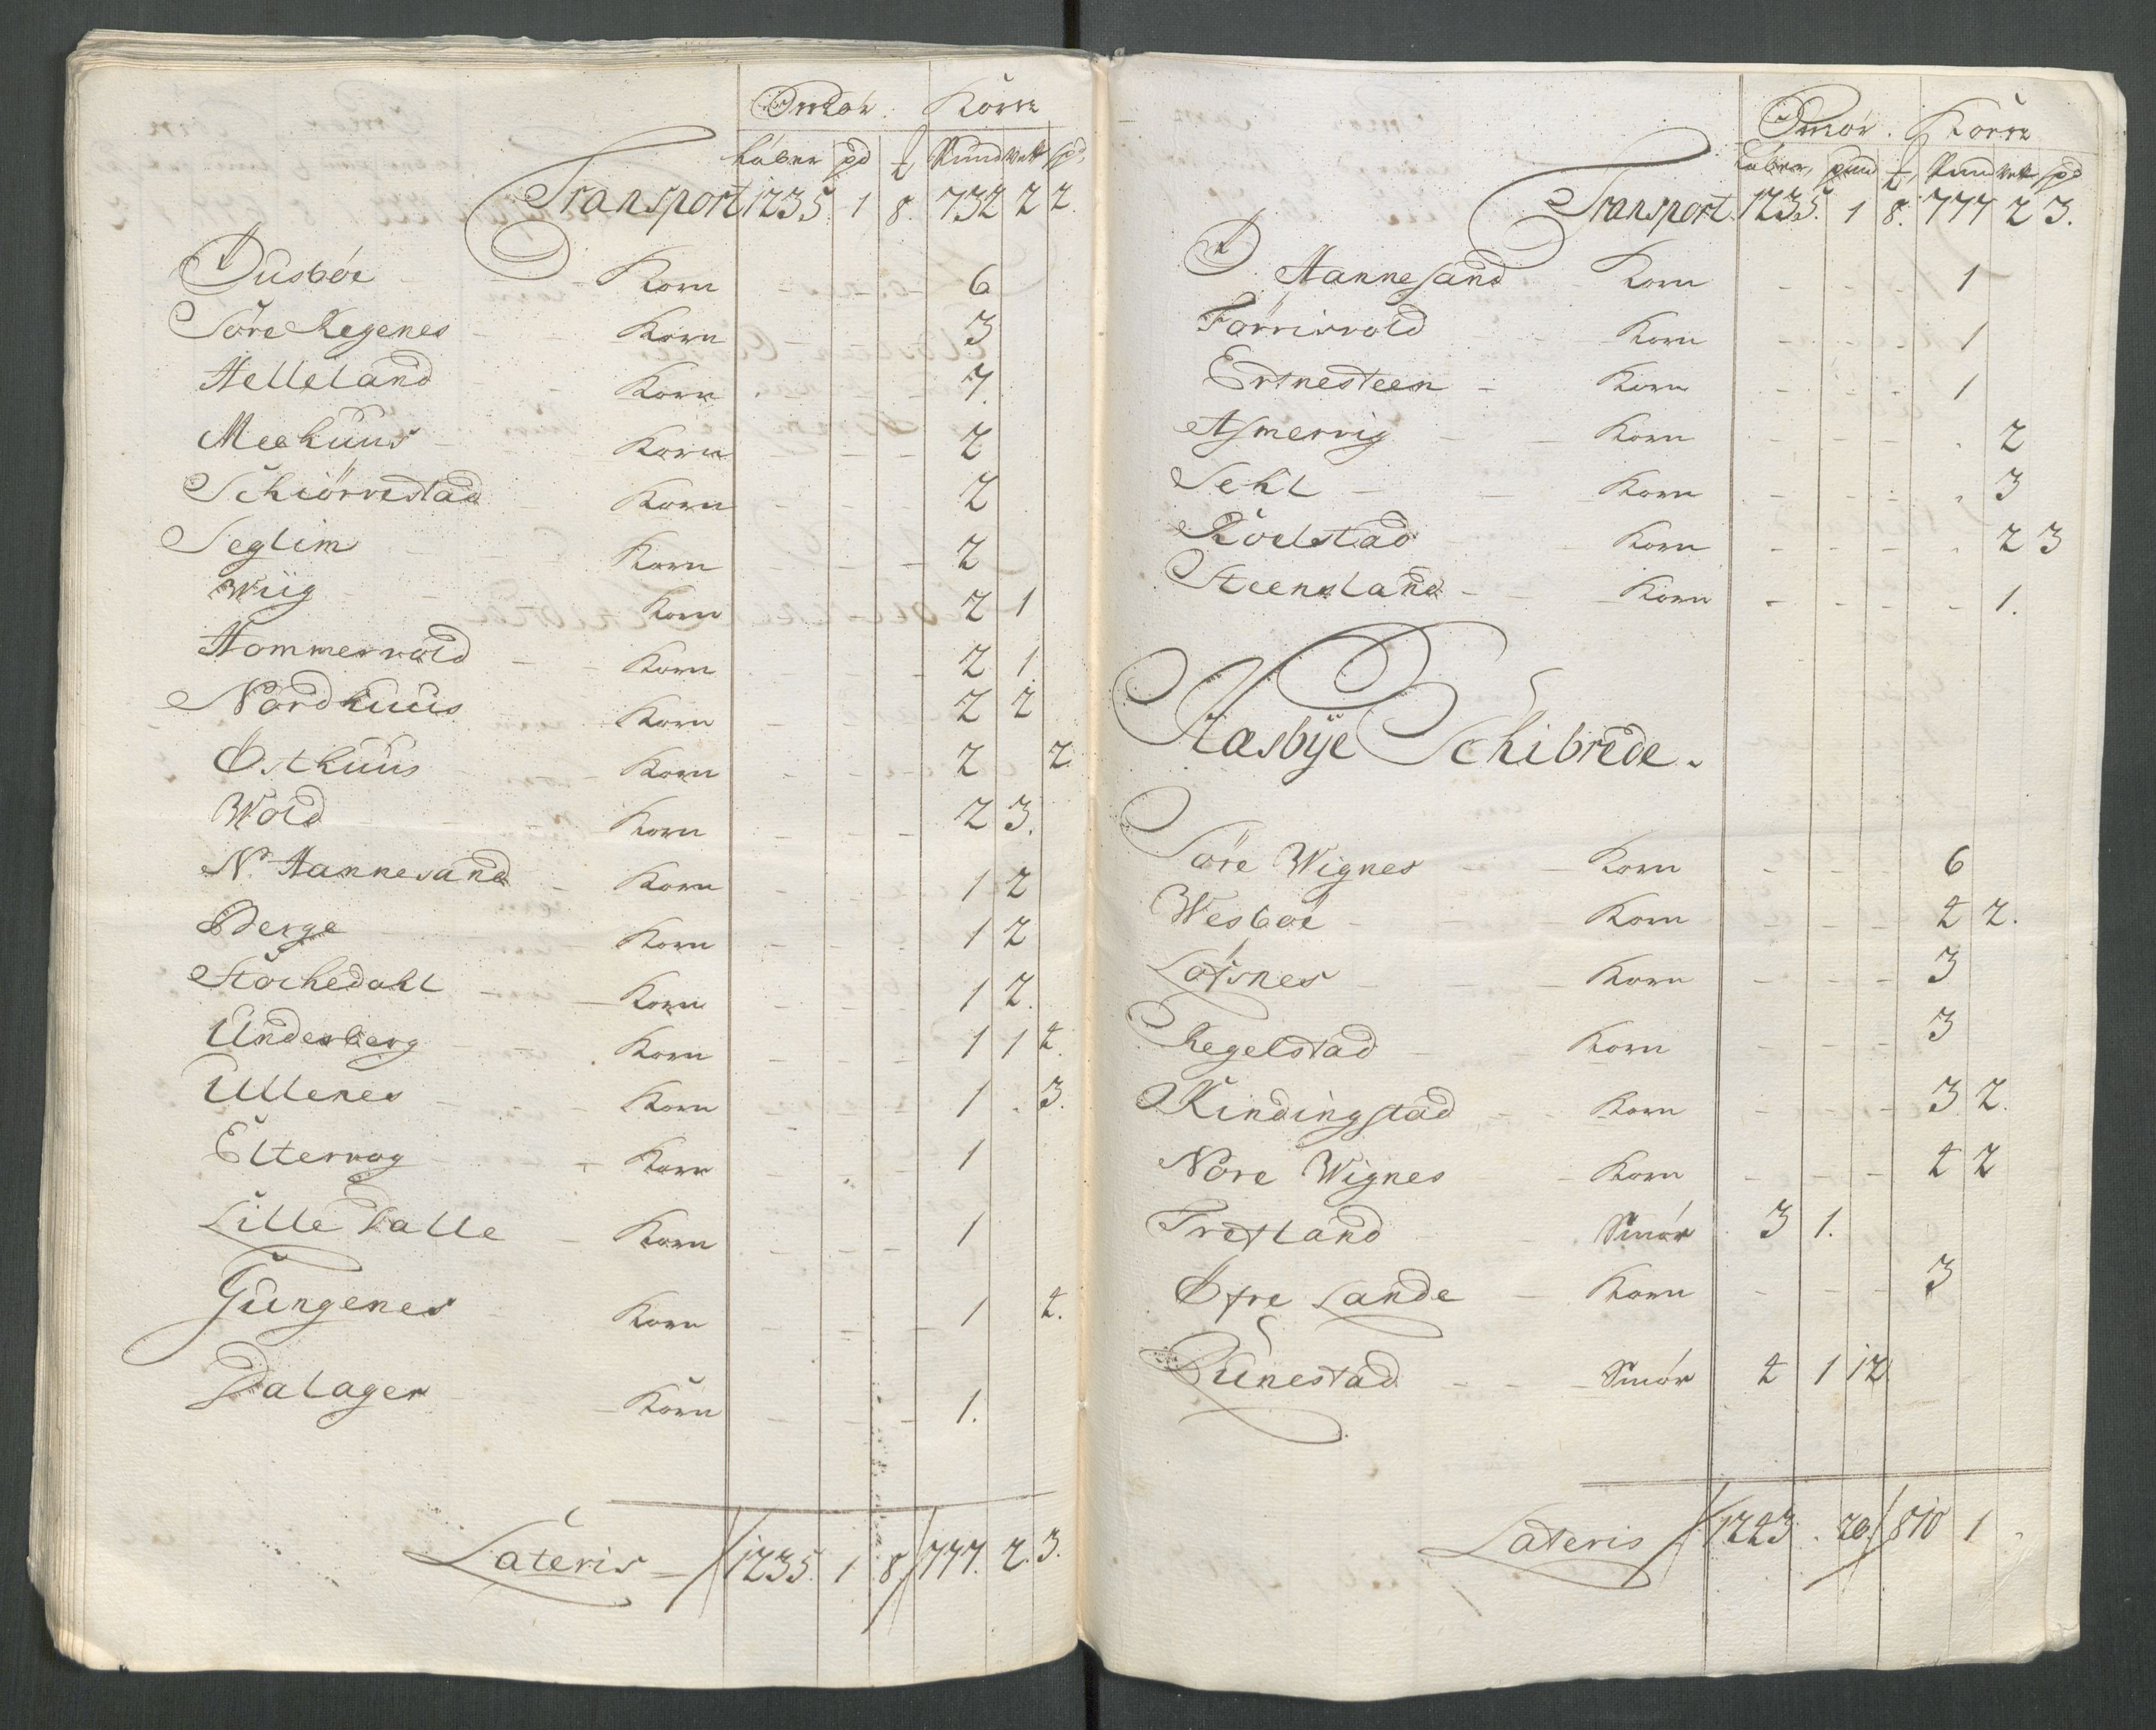 Smør. Korn
Løber pd ℔ Pund Vet spd
Transport 1235. 1 8. 732 2 2.
Dusbøe Korn 6
Søre Regenes Korn 3
Helleland Korn 7.
Meehuus Korn 2
Schiørrestad Korn 2
Seglim Korn 2
Wiig Korn 2 1
Hommervold Korn 2 1
Nordhuus Korn 2 2
Østhuus Korn 2 2
Wold Korn 2 3.
N. Hannesand Korn 1 2
Berge Korn 1 2
Stochedahl Korn 1 2.
Underberg Korn 1 1 4.
Ullenes Korn 1 . 3.
Eltervog Korn 1
Lille Dalle Korn 1
Gungenes Korn 1 4.
Dalager Korn 1.
Lateris 1235. 1 8 777. 2. 3.
Smør. Korn
Løber, pund ℔, Pund Vet spd
Transport 1235. 1 8. 777 2 3.
Hannesand Korn 1
Førrisvold Korn 1
Ertnesteen Korn 1
Asmervig Korn 2
Sehl Korn 3
Roelstad Korn 2 3
Steensland Korn 1.
Aasbÿe Schibrede.
Søre Wignes Korn 6
Wesbøe Korn 4 2.
Lofsnes Korn 3
Regelstad Korn 3
Kindingstad Korn 3 2.
Nore Wignes Korn 4 2
Tretland Smør 3 1.
Øfre Lande Korn 3
Runestad Smør 4 1 12
Lateris 1243 . 20 810 1 .